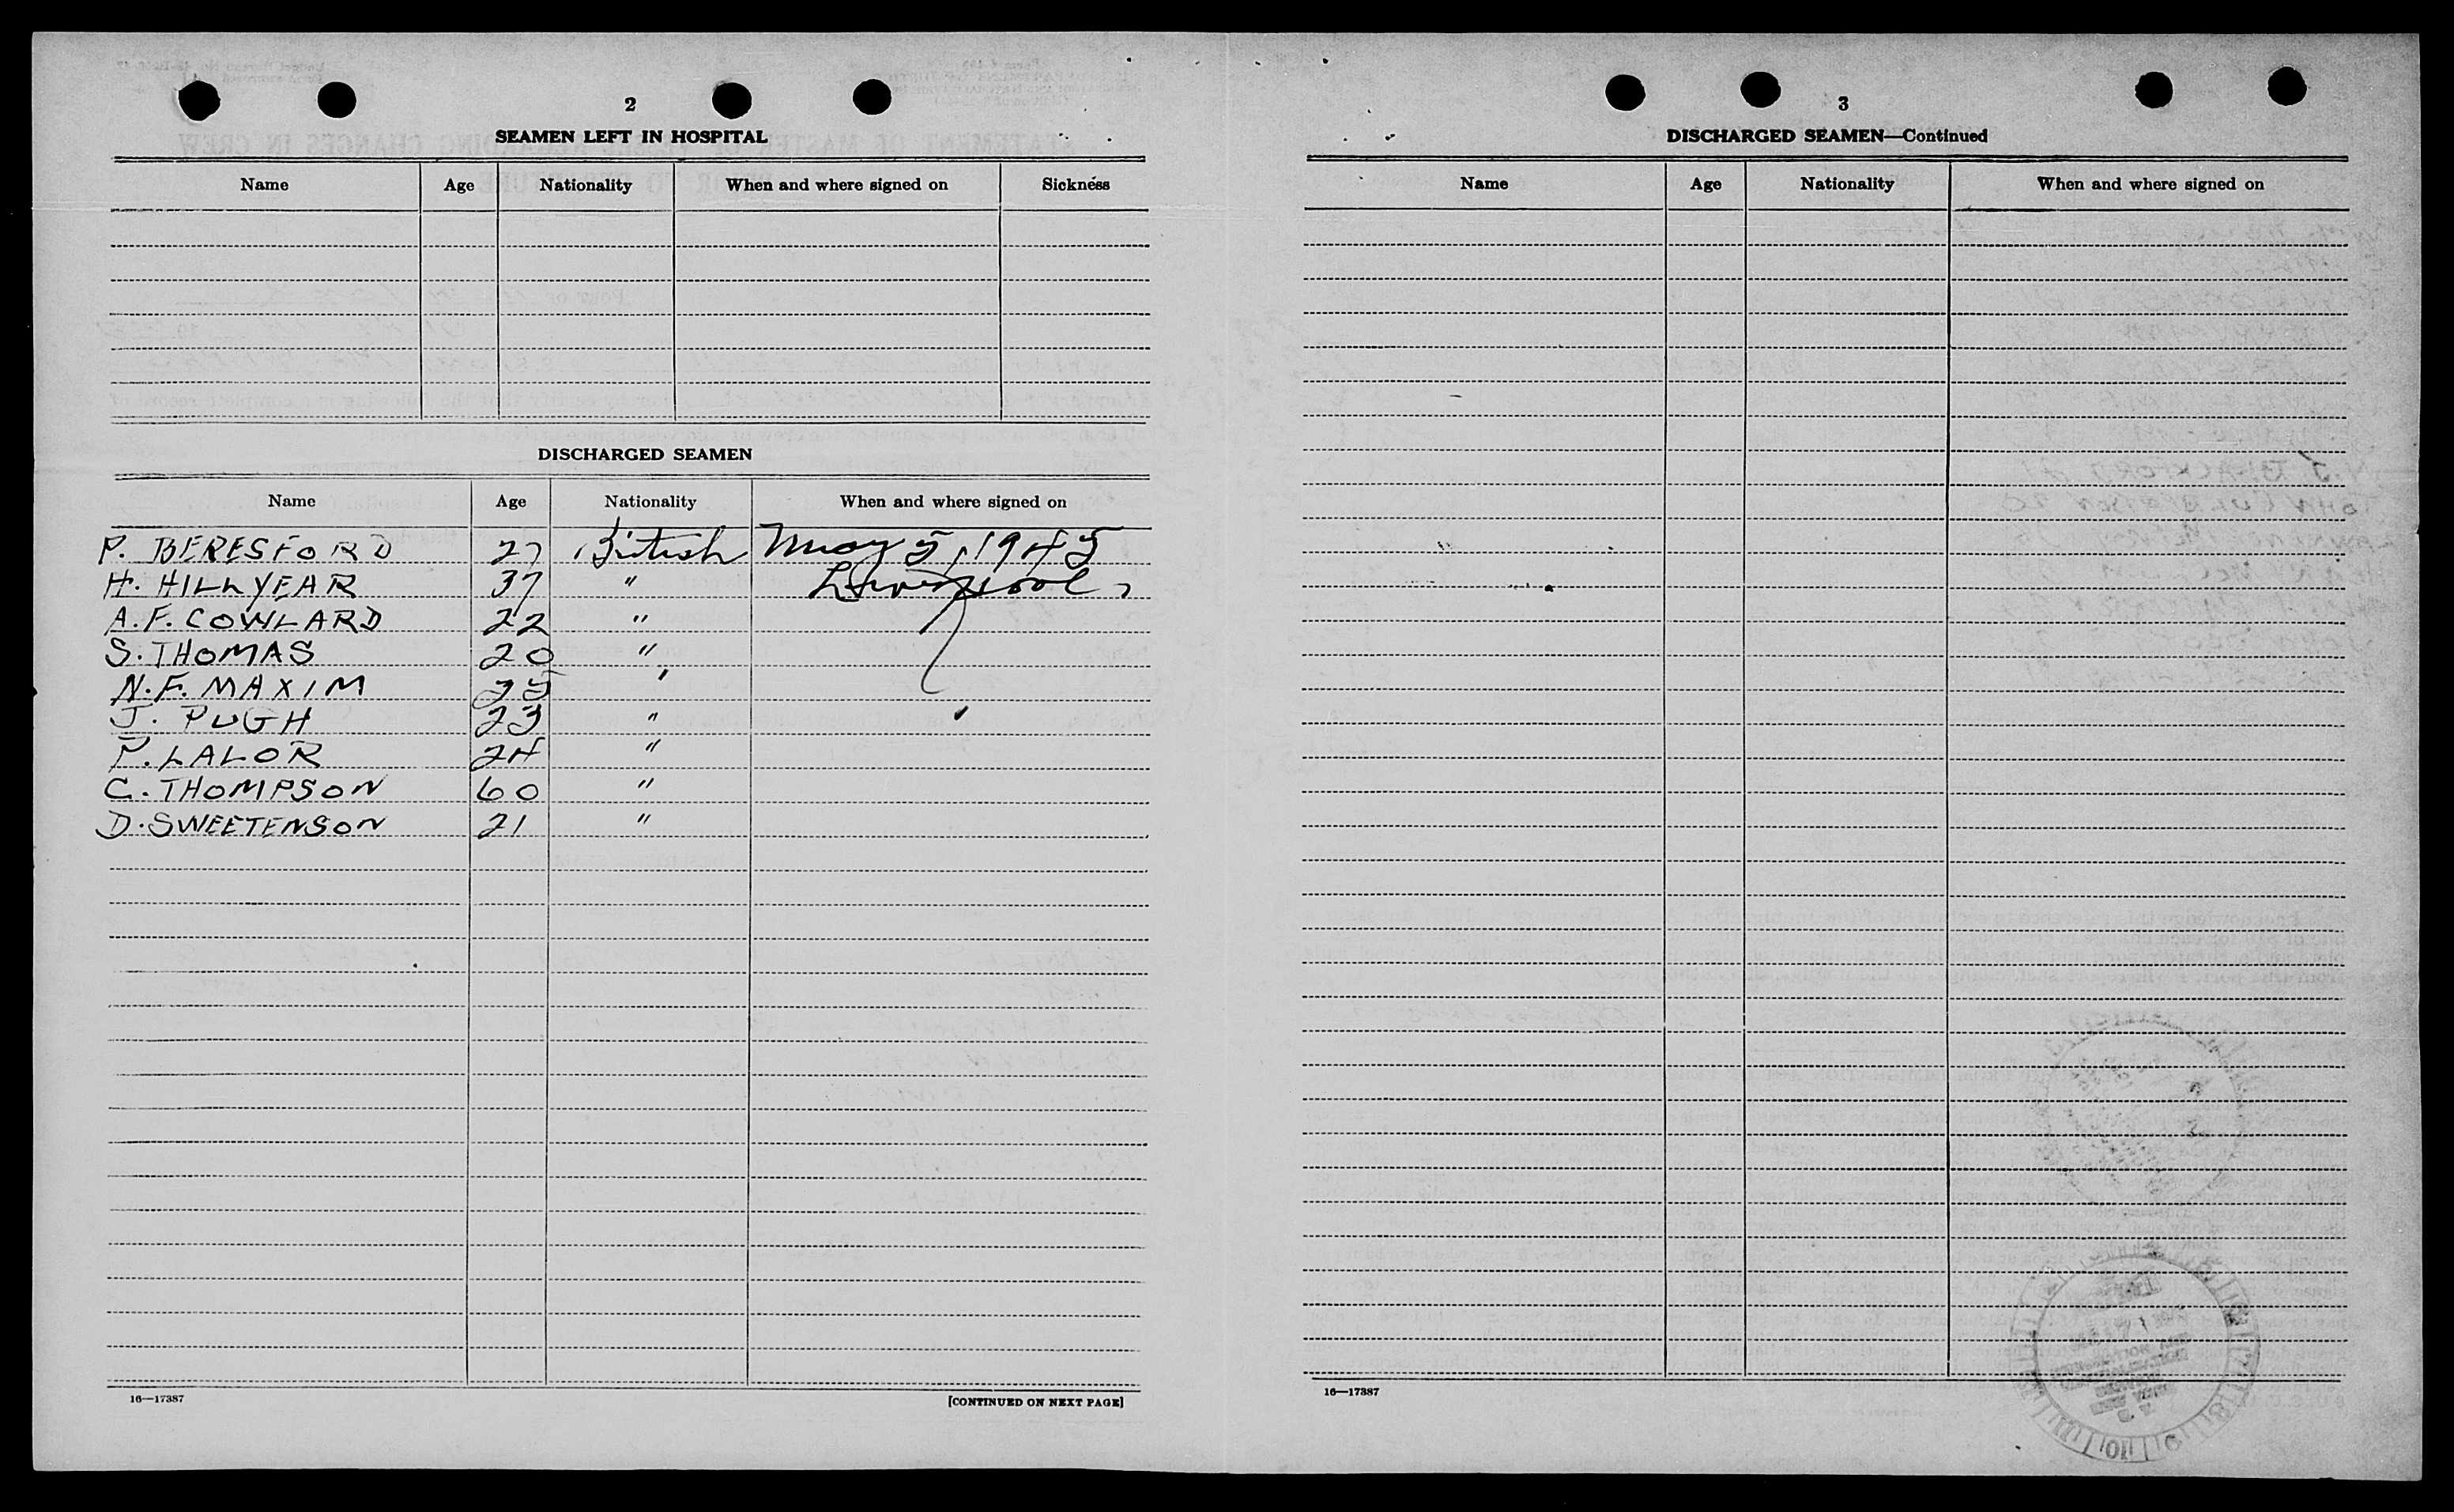 2
SEAMEN LEFT IN HOSPITAL
Name Age Nationality When and where signed on Sickness
DISCHARGED SEAMEN
Name Age Nationality When and where signed on
P. BERESFORD 27 British May 5, 1945
H. HILLYEAR 37 " Liverpool
A. F. COWLARD 22 "
S. THOMAS 20 "
N. F. MAXIM "
J. PUGH 23 "
P. LALOR 24 "
C. THOMPSON 60 "
D. SWEETENSON 21 "
16—17387 [CONTINUED ON NEXT PAGE]
3
DISCHARGED SEAMEN—Continued
Name Age Nationality When and where signed on
16—17387